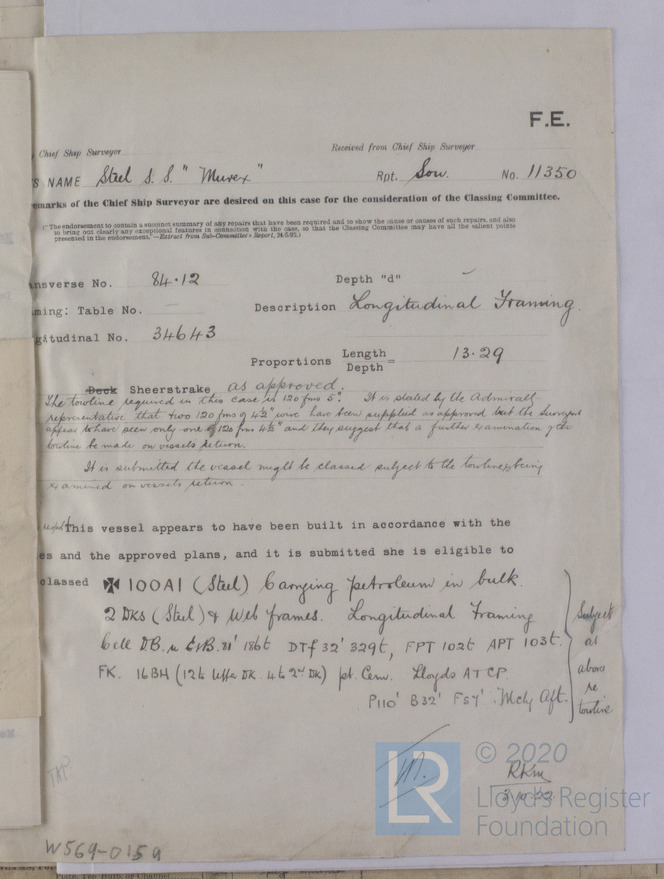 F.E.
Chief Ship Surveyor
Received from Chief Ship Surveyor
'S NAME Steel S.S. "Murex" Rpt. Sow. No. 11350
emarks of the Chief Ship Surveyor are desired on this case for the consideration of the Classing Committee.
("The endorsement to contain a succinct summary of any repairs that have been required and to show the cause or causes of such repairs, and also
to bring out clearly any exceptional features in connection with the case, so that the Classing Committee may have all the salient points
presented in the endorsement."—Extract from Sub-Committee's Report, 24/5/02.)
ansverse No. 84·12 Depth "d"
ming: Table No. Description Longitudinal Framing.
gitudinal No. 34643
Proportions Length/Depth = 13·29
Deck Sheerstrake as approved.
The towline required in this case is 120 fms 5". It is stated by the Admiralty
representative that two 120 fms of 4½" wire have been supplied as approved but the Surveyors
appear to have seen only one of 120 fms 4½" and they suggest that a further examination of the
towline be made on vessels return.
It is submitted the vessel might be classed subject to the towlines being
examined on vessels return.
This vessel appears to have been built in accordance with the
es and the approved plans, and it is submitted she is eligible to
classed ✠ 100A1 (Steel) Carrying petroleum in bulk.
2 Dks (Steel) & Web frames. Longitudinal Framing
Cell DB. u E&B. 81' 186t DTf 32' 329t, FPT 102t APT 103t.
FK. 16BH (12 to Upper Dk. 4 to 2nd Dk) pt. Cem. Lloyds A&CP.
P110' B32' F57' Mchy Aft.
Subject
as
above
re
towline
RKM
3.10.22
W569-0159
LR
© 2020
Lloyd's Register
Foundation